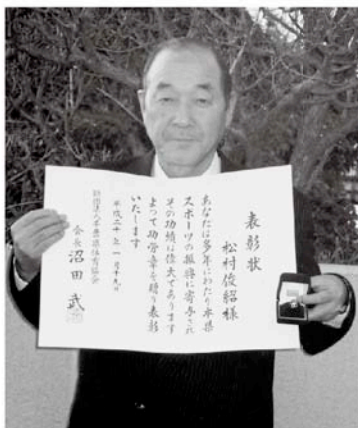 表彰状
松村俊紹様
あなたは多年にわたり本県
スポーツの振興に寄与され
その功績は偉大であります
よって功労章を贈り表彰
いたします
平成二十一年一月十九日
財団法人千葉県体育協会
会長 沼田 武